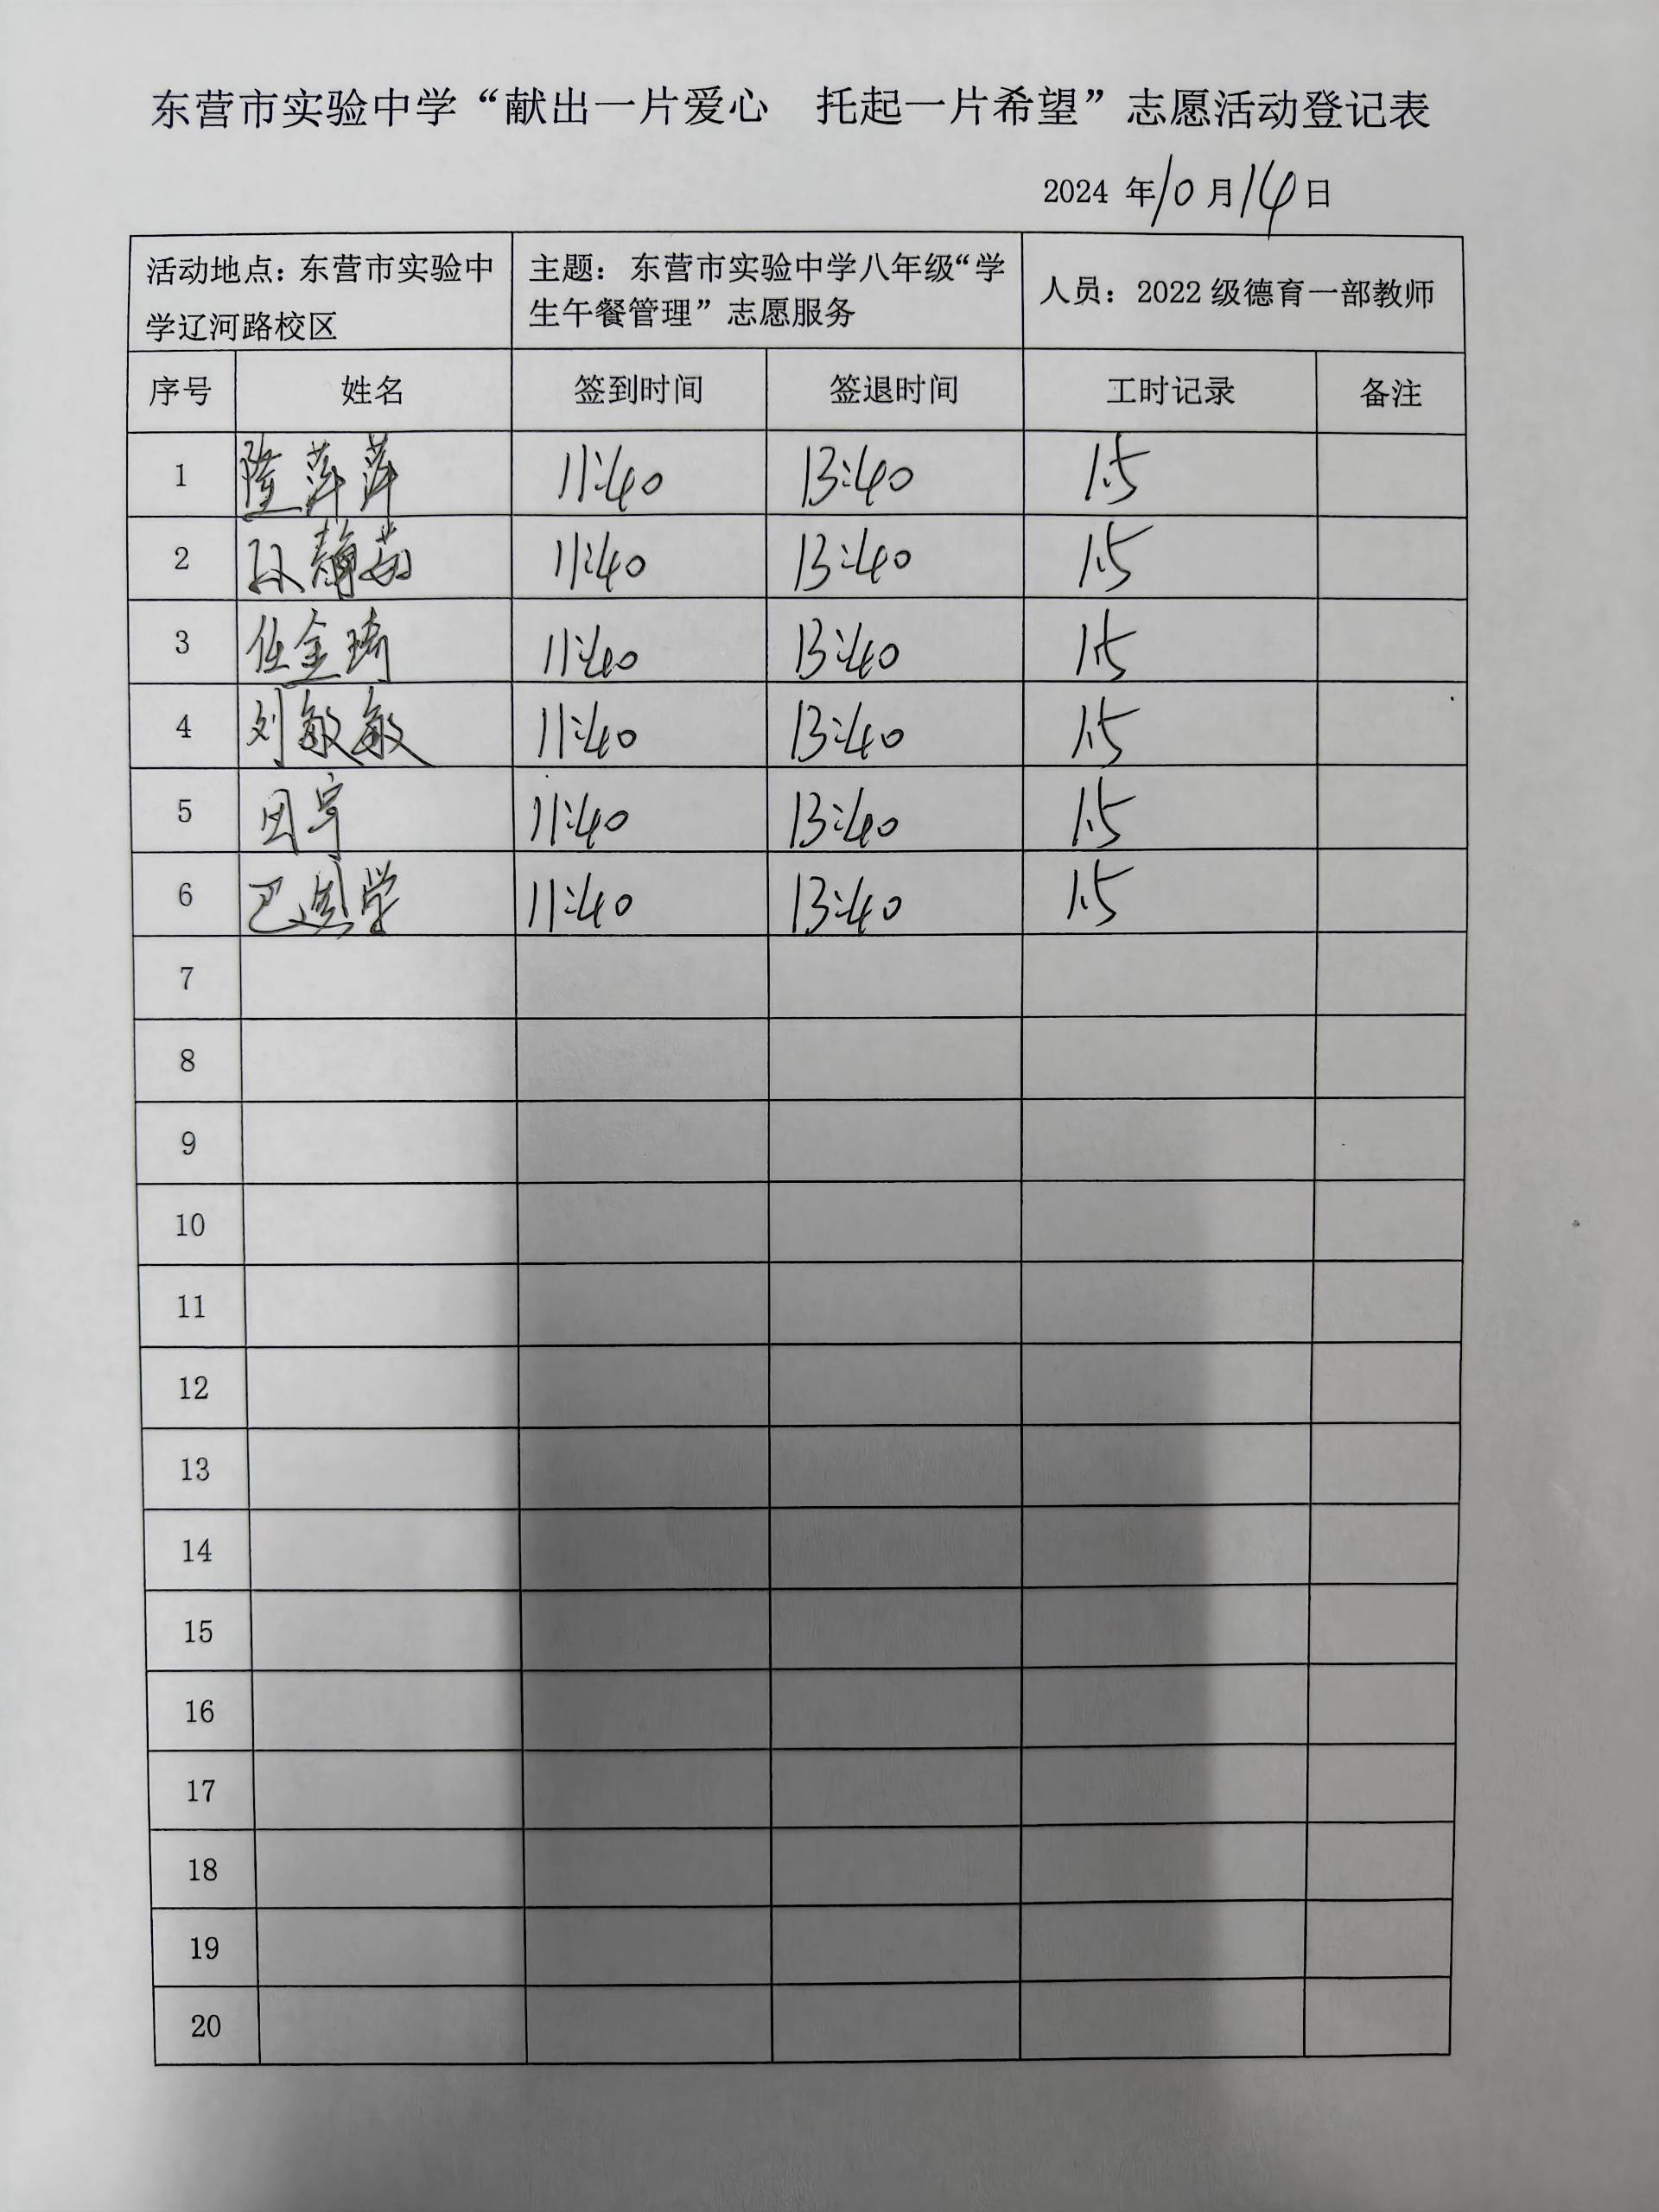 东营市实验中学“献出一片爱心 托起一片希望”志愿活动登记表
2024 年10月14日
活动地点：东营市实验中
学辽河路校区
主题： 东营市实验中学八年级“学
生午餐管理”志愿服务
人员：2022 级德育一部教师
序号 姓名 签到时间 签退时间 工时记录 备注
1 隆萍萍 11:40 13:40 1.5
2 孙静茹 11:40 13:40 1.5
3 任金琦 11:40 13:40 1.5
4 刘敏敏 11:40 13:40 1.5
5 田宇 11:40 13:40 1.5
6 巴 学 11:40 13:40 1.5
7
8
9
10
11
12
13
14
15
16
17
18
19
20